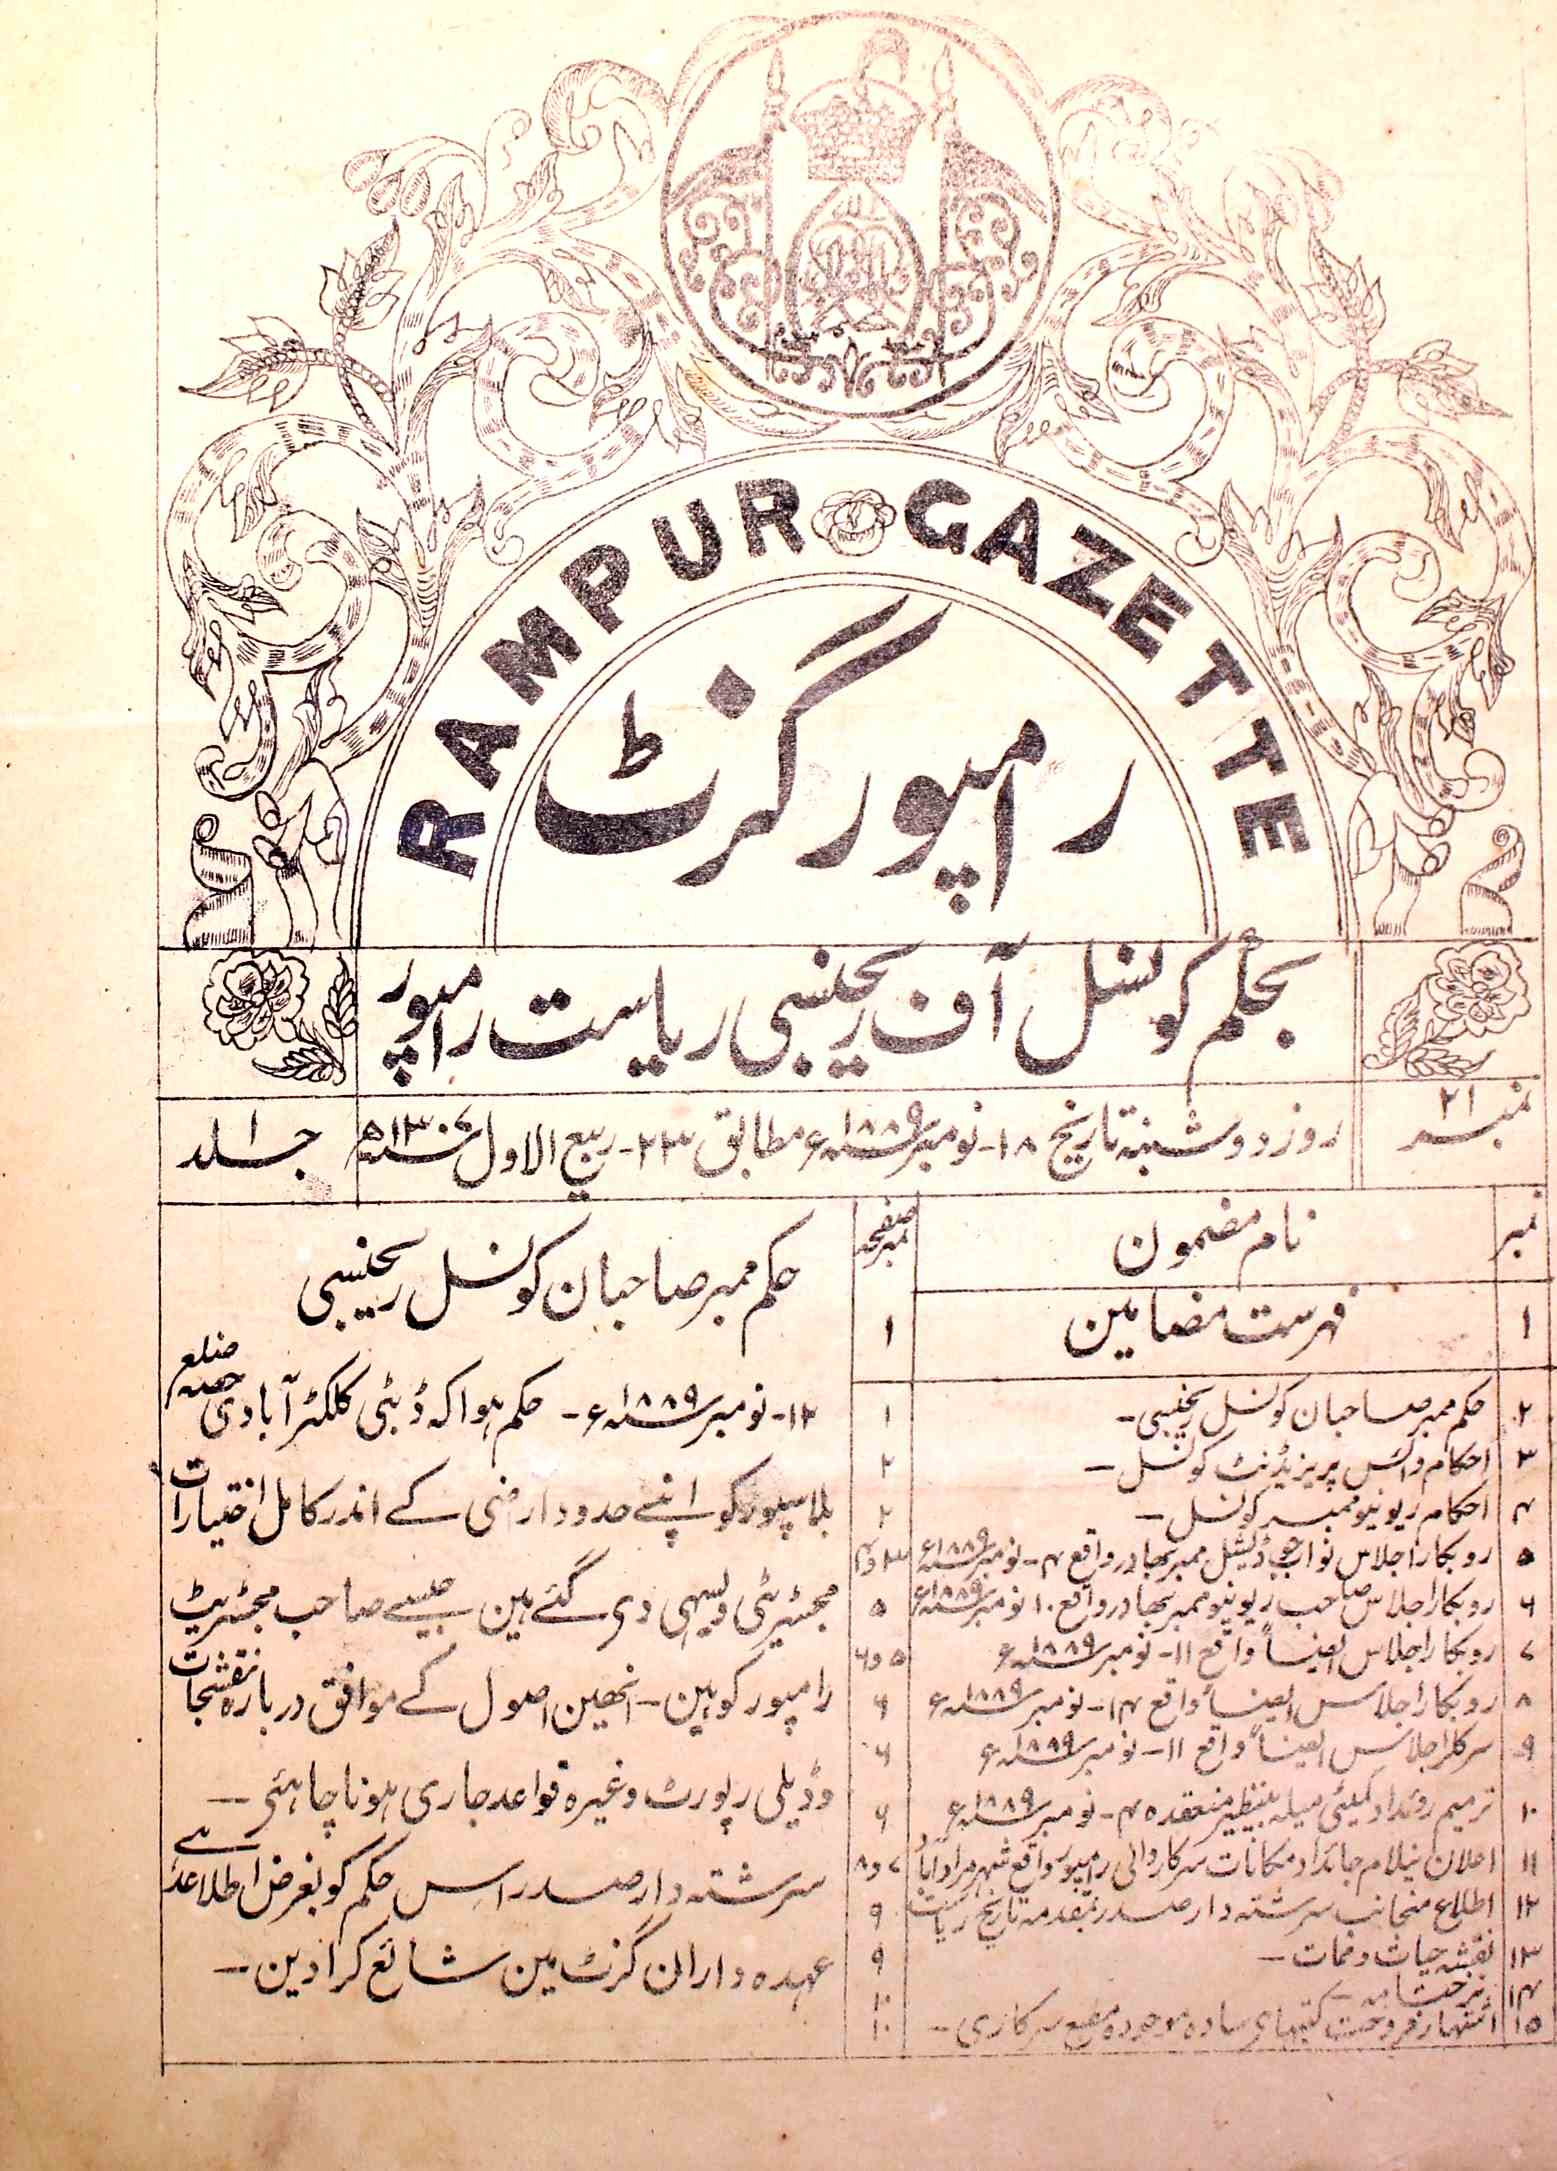 RAMPUR GAZETTE
رامپور گزٹ
بحکم کونسل آف ریجنسی ریاست رامپور
نمبر ۲۱
روز دوشنبہ تاریخ ۱۸- نومبر ۱۸۸۹ء مطابق ۲۳- ربیع الاول ۱۳۰۷ھ
جلد ۱
نمبر نام مضمون نمبر صفحہ
۱ فہرست مضامین ۱
۲ حکم ممبر صاحبان کونسل ریجنسی - ۱
۳ احکام وائس پریزیڈنٹ کونسل - ۲
۴ احکام ریونیو ممبر کونسل - ۲
۵ روبکار اجلاس نواب جوڈیشل ممبر بہادر واقع ۴- نومبر ۱۸۸۹ء ۳ و ۴
۶ روبکار اجلاس صاحب ریونیو ممبر بہادر واقع ۱۰ نومبر ۱۸۸۹ء ۵
۷ روبکار اجلاس ایضاً واقع ۱۱- نومبر ۱۸۸۹ء ۵ و ۶
۸ روبکار اجلاس ایضاً واقع ۱۴- نومبر ۱۸۸۹ء ۶
۹ سرکلر اجلاس ایضاً واقع ۱۱- نومبر ۱۸۸۹ء ۶
۱۰ ترمیم روئداد کمیٹی میلہ بینظیر منعقدہ ۴- نومبر ۱۸۸۹ء ۶
۱۱ اعلان نیلام جائداد مکانات سرکار والی رامپور واقع شہر مرادآباد ۷ و ۸
۱۲ اطلاع منجانب سرشتہ دار صدر بمقدمہ تاریخ ریاست ۹
۱۳ نقشہ حیات و ممات - ۹
۱۴ نرخنامہ - ۱۰
۱۵ اشتہار فروخت کتبہای سادہ موجودہ مطبع سرکاری - ۱۰
حکم ممبر صاحبان کونسل ریجنسی
۱۲- نومبر ۱۸۸۹ء - حکم ہوا کہ ڈپٹی کلکٹر آبادی حصہ ضلع
بلاسپور کو اپنے حدود ارضی کے اندر کامل اختیارات
مجسٹریٹی ویسہی دی گئے ہین جیسے صاحب مجسٹریٹ
رامپور کو ہین - انھین اصول کے موافق دربارہ نقشجات
و ڈیلی رپورٹ وغیرہ قواعد جاری ہونا چاہئی --
سرشتہ دار صدر اس حکم کو بغرض اطلاع
عہدہ داران گزٹ مین شائع کرا دین --